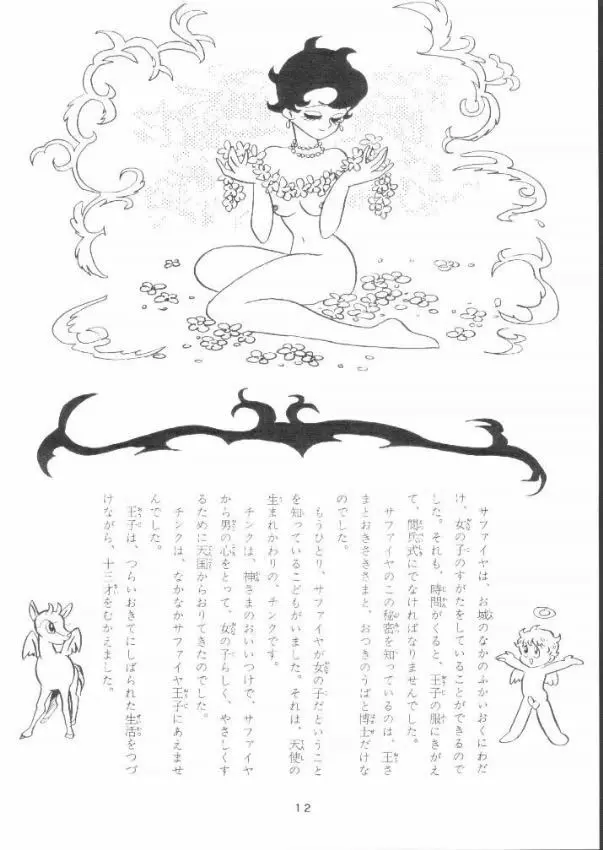 サファイヤは、お城のなかのふかいおくにわだ
け、女の子のすがたをしていることができるので
した。それも、時間がくると、王子の服にきがえ
て、閲兵式にでなければなりませんでした。
サファイヤのこの秘密を知っているのは、王さ
まとおきさきさまと、おつきのうばと博士だけな
のでした。
もうひとり、サファイヤが女の子だということ
を知っているこどもがいました。それは、天使の
生まれかわりの、チンクです。
チンクは、神さまのおいいつけで、サファイヤ
から男の心をとって、女の子らしく、やさしくす
るために天国からおりてきたのでした。
チンクは、なかなかサファイヤ王子にあえませ
んでした。
王子は、つらいおきてにしばられた生活をつづ
けながら、十三才をむかえました。
12